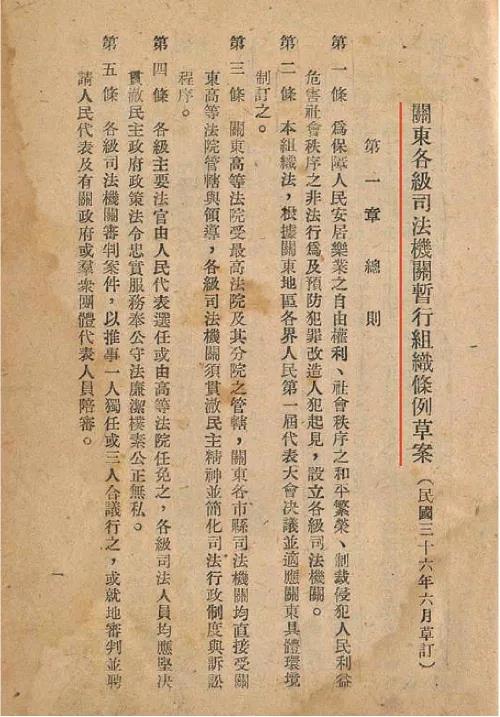 關東各級司法機關暫行組織條例草案（民國三十六年六月草訂）
第一章 總則
第一條 爲保障人民安居樂業之自由權利、社會秩序之和平繁榮、制裁侵犯人民利益
危害社會秩序之非法行爲及預防犯罪改造人犯起見，設立各級司法機關。
第二條 本組織法，根據關東地區各界人民第一屆代表大會決議並適應關東具體環境
制訂之。
第三條 關東高等法院受最高法院及其分院之管轄，關東各市縣司法機關均直接受關
東高等法院管轄與領導，各級司法機關須貫澈民主精神並簡化司法行政制度與訴訟
程序。
第四條 各級主要法官由人民代表選任或由高等法院任免之，各級司法人員均應堅決
貫澈民主政府政策法令忠實服務奉公守法廉潔樸素公正無私。
第五條 各級司法機關審判案件，以推事一人獨任或三人合議行之，或就地審判並聘
請人民代表及有關政府或羣衆團體代表人員陪審。